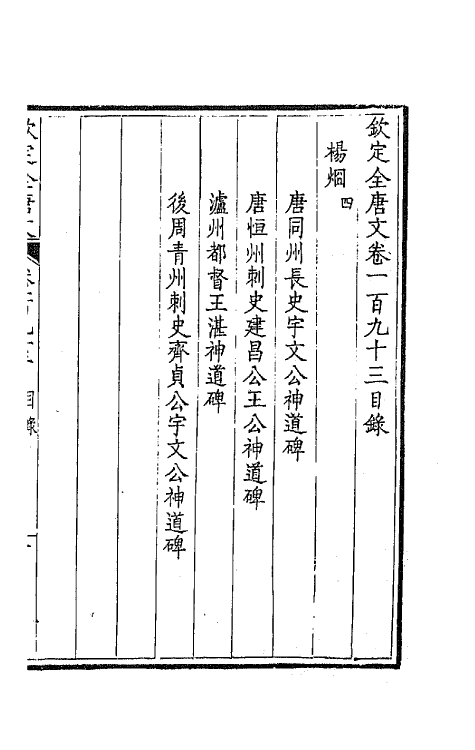 欽定全唐文卷一百九十三目錄
楊烱 四
唐同州長史宇文公神道碑
唐恒州刺史建昌公王公神道碑
瀘州都督王湛神道碑
後周青州刺史齊貞公宇文公神道碑
欽定全唐文 卷一百九十三 目錄 一